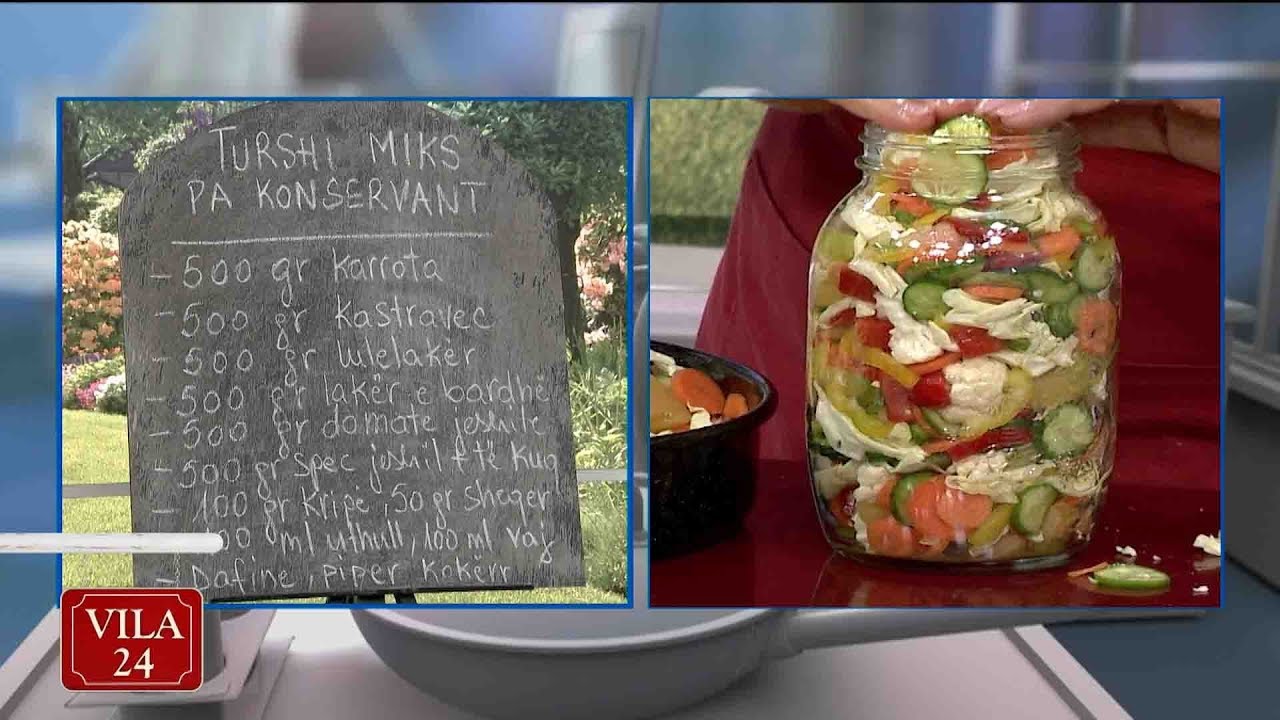 TURSHI MIKS
PA KONSERVANT
- 500 gr Karrota
- 500 gr Kastravec
- 500 gr lulelaker
- 500 gr lakër e bardhë
- 500 gr domate jeshile
- 500 gr spec jeshil + të kuq
- 100 gr kripe, 50 gr sheqer
00 ml uthull, 100 ml vaj
- Dafine, piper kokërr
VILA
24